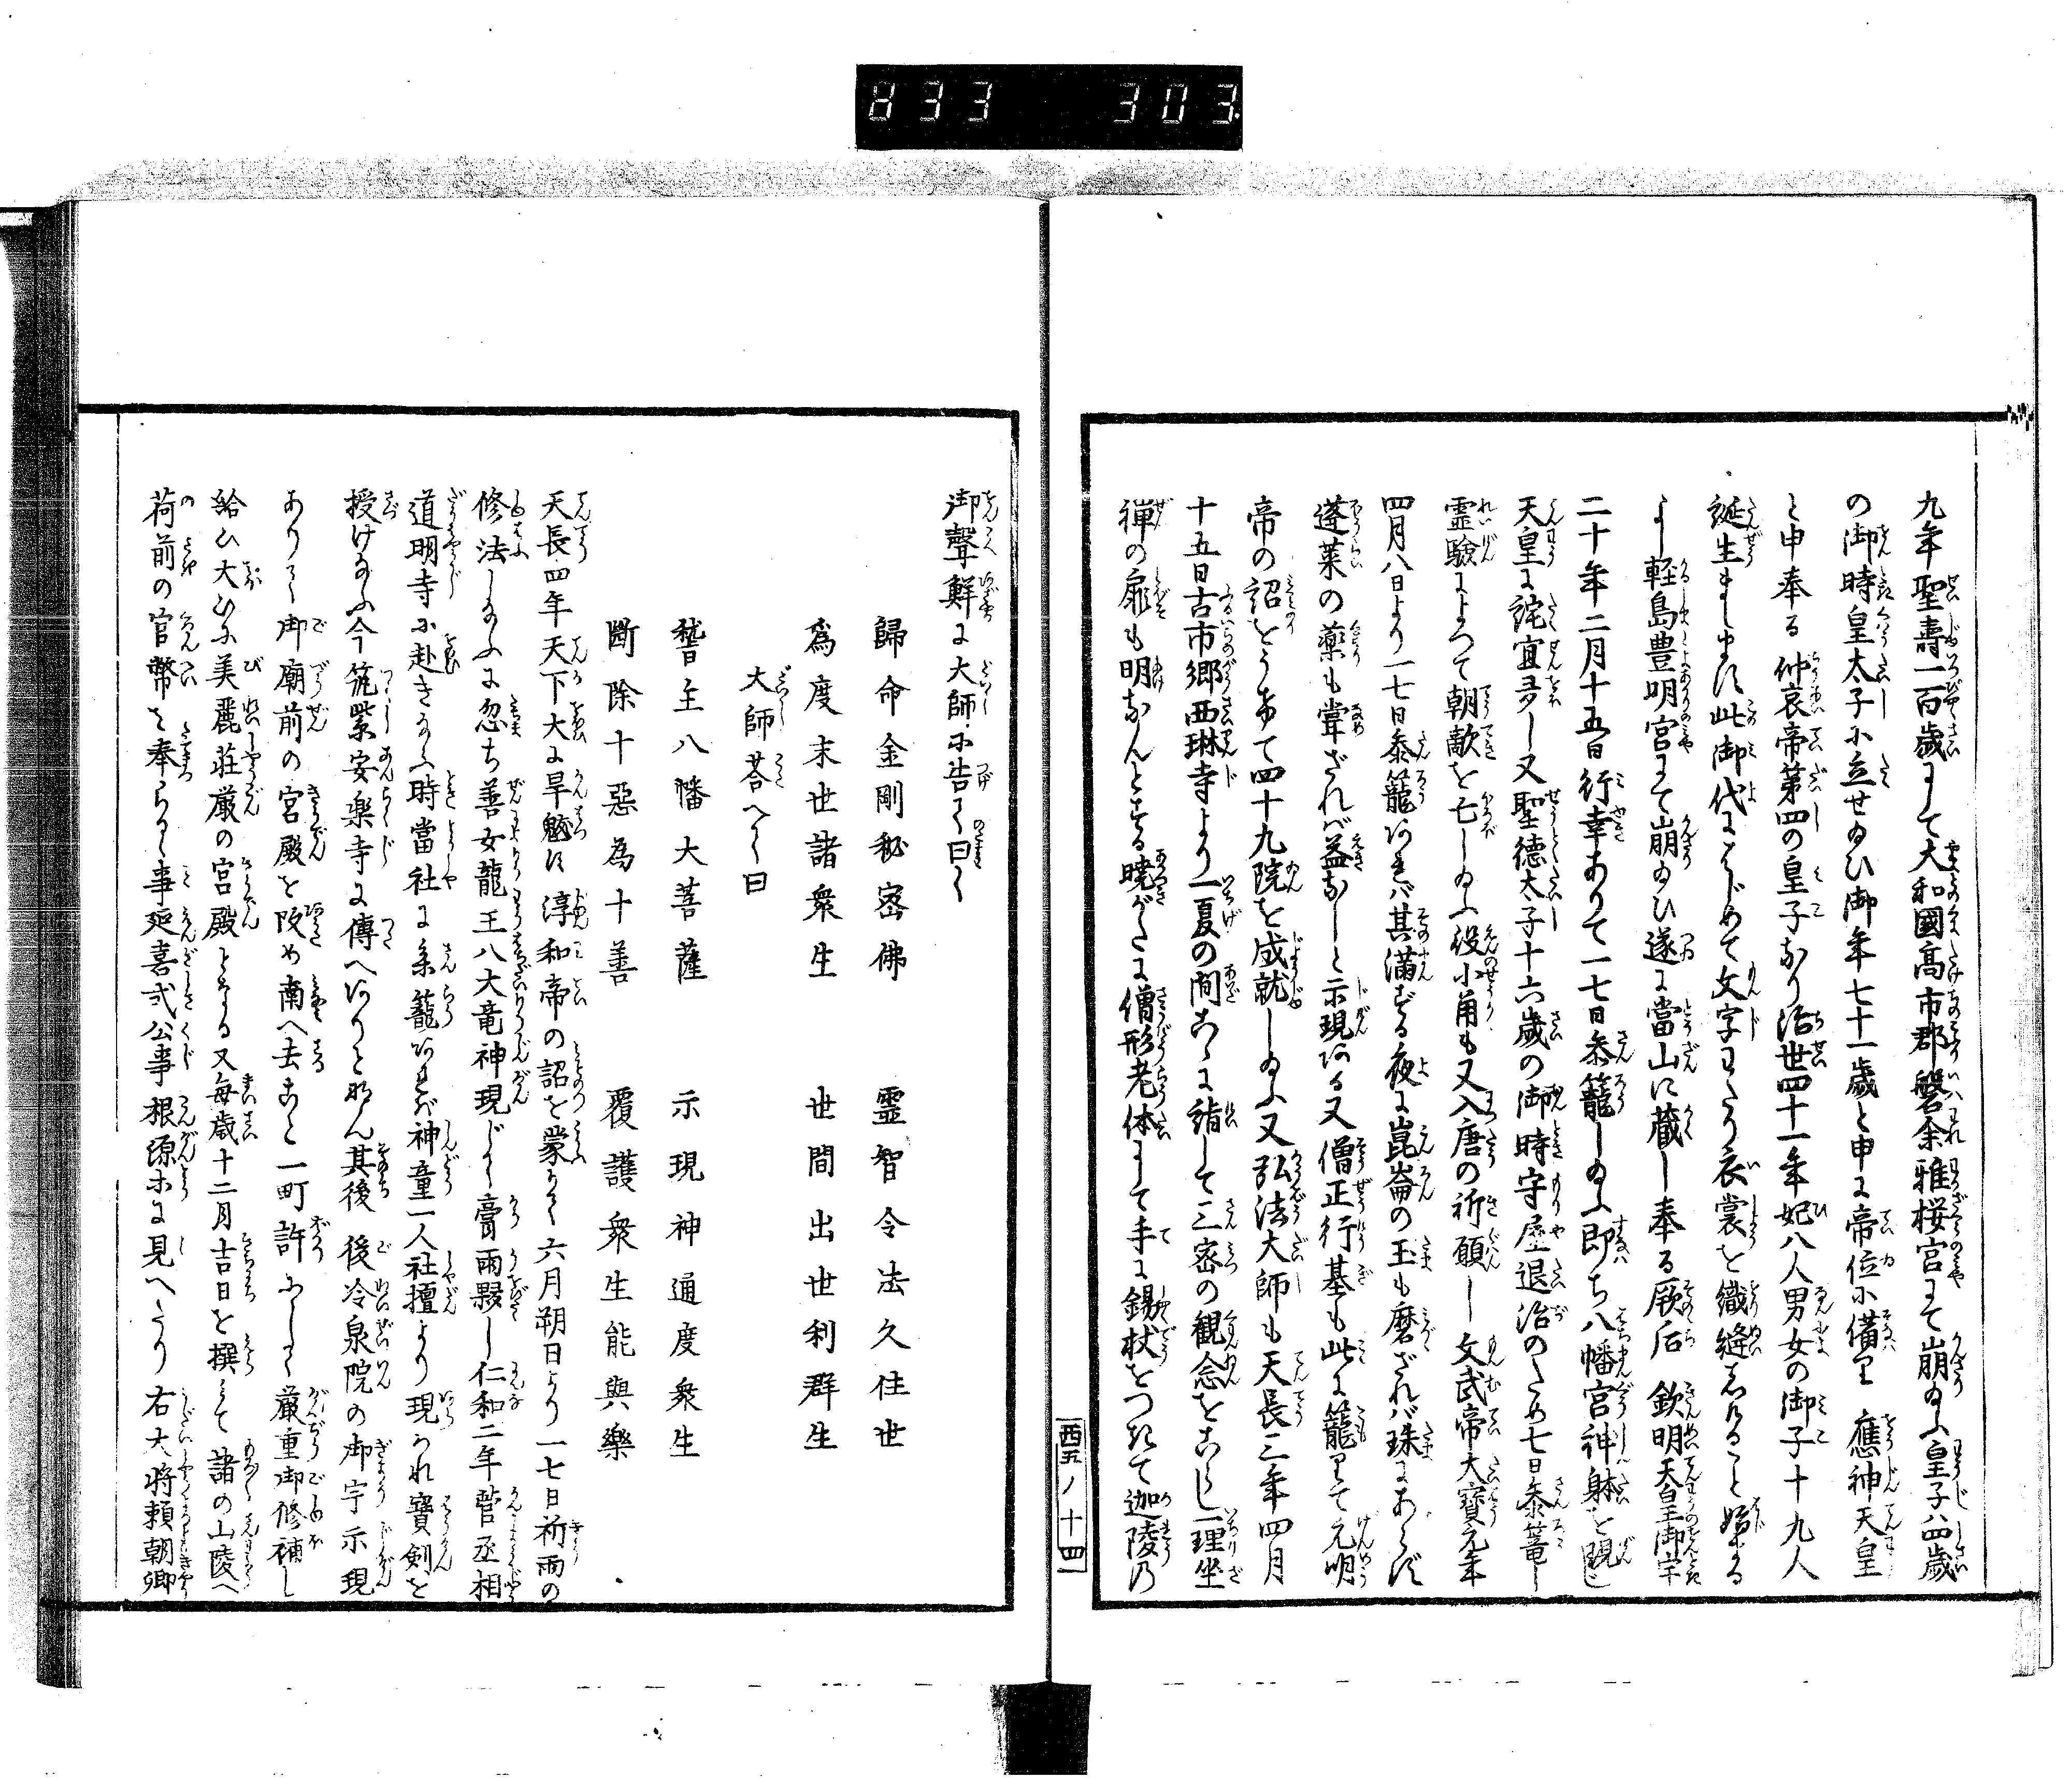 833 303
九年聖壽一百歳にして大和國高市郡磐余雅桜宮にて崩給ふ皇子は四歳
の御時皇太子に立せ給ひ御年七十一歳と申に帝位に備り 應神天皇
と申奉る仲哀帝第四の皇子なり治世四十一年妃八人男女の御子十九人
誕生まします此御代にはじめて文字わたり衣裳を織縫しむること始まる
よし軽島豊明宮にて崩給ひ遂に當山に蔵し奉る厥后 欽明天皇御宇
二十年二月十五日行幸ありて一七日参籠し給ふ即ち八幡宮神躰を現じ
天皇に詫宣ましまし又聖徳太子十六歳の御時守屋退治のため七日参篭し
霊驗によつて朝敵を亡し給ふ役小角も又入唐の祈願し文武帝大寶元年
四月八日より一七日参籠ければ其満ずる夜に崑崙の玉も磨ざれば珠にあらず
蓬莱の藥も甞ざれば益なしと示現ある又僧正行基も此に籠りて元明
帝の詔をうけて四十九院を成就し給ふ又弘法大師も天長三年四月
十五日古市郷西琳寺より一夏の間こゝに詣して三密の観念をこらし一理坐
禅の扉も明なんとする曉がたに僧形老体にして手に錫杖をつきて迦陵の
西五ノ十四
御聲鮮に大師に告て曰く
歸命金剛秘密佛 霊智令法久住世
為度末世諸衆生 世間出世利群生
大師荅へて曰
稽主八幡大菩薩 示現神通度衆生
斷除十惡為十善 覆護衆生能與樂
天長四年天下大に旱魃に 淳和帝の詔を蒙りて六月朔日より一七日祈雨の
修法し給ふに忽ち善女龍王八大竜神現じて膏雨夥し仁和二年菅丞相
道明寺に赴き給ふ時當社に参籠ければ神童一人社壇より現われ寳剣を
授け給ふ今筑紫安楽寺に傳へけりと、なん其後 後冷泉院の御宇示現
ありて御廟前の宮殿を改め南へ去こと一町許にして厳重御修補し
給ひ大ひに美麗荘厳の宮殿となる又毎歳十二月吉日を撰みて諸の山陵へ
荷前の官幣を奉らるゝ事延喜式公事根源等に見へたり 右大将頼朝卿